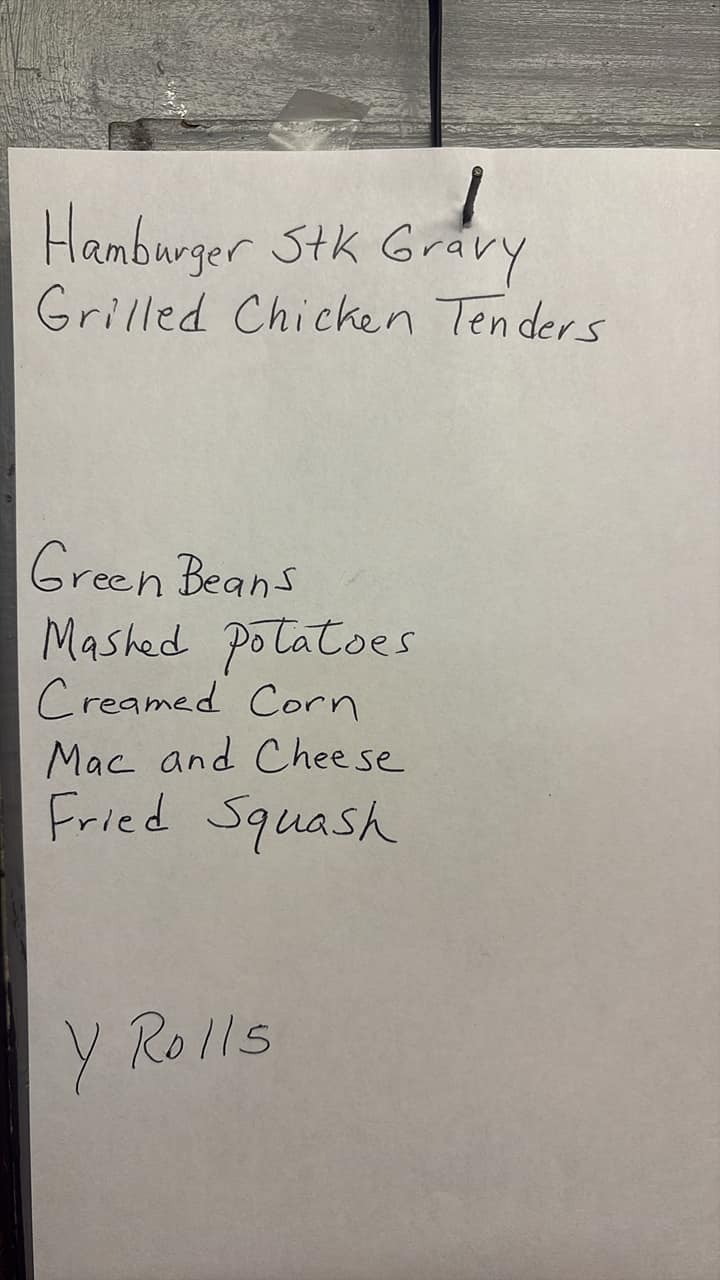 Hamburger Stk Gravy
Grilled Chicken Tenders
Green Beans
Mashed potatoes
Creamed Corn
Mac and Cheese
Fried Squash
Y Rolls